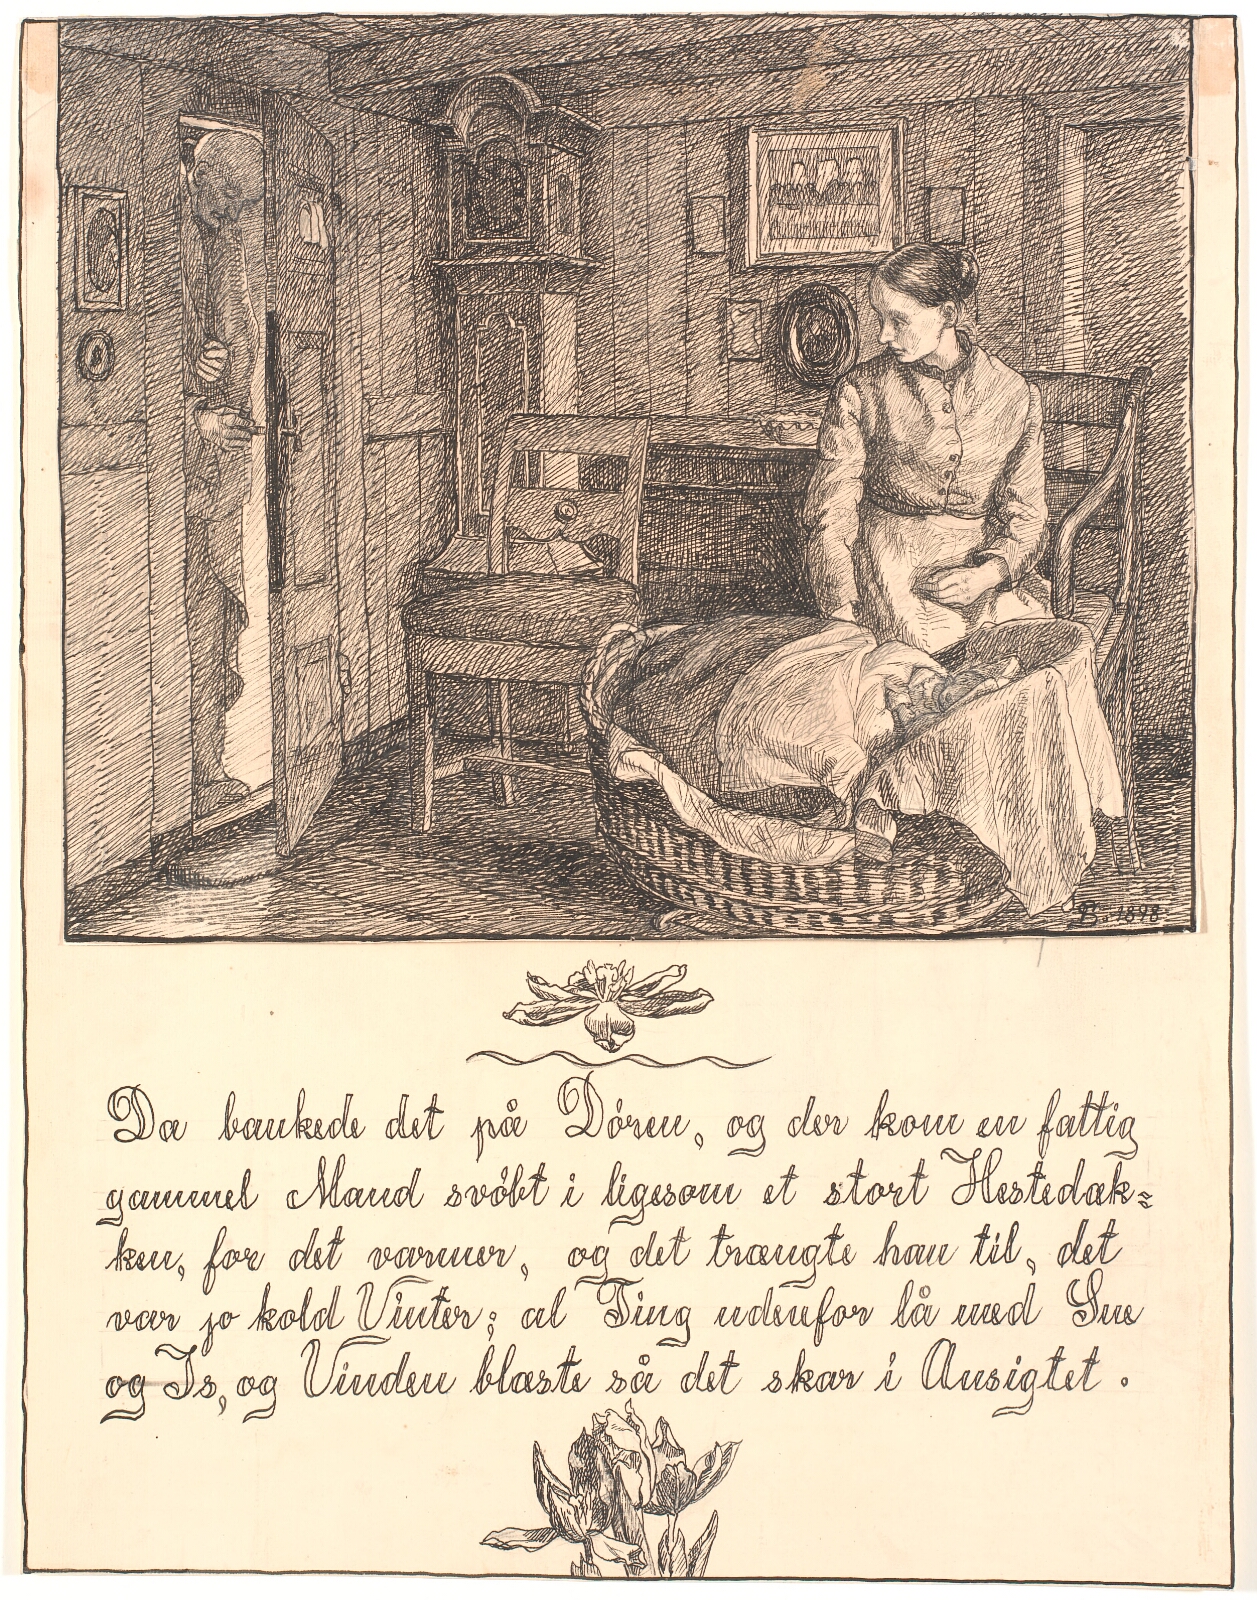 B. 1898
Da bankede det på Døren, og der kom en fattig
gammel Mand svøbt i ligesom et stort Hestedæk=
ken, for det varmer, og det trængte han til, det
var jo kold Vinter; al Ting udenfor lå med Sne
og Is, og Vinden blæste så det skar i Ansigtet.